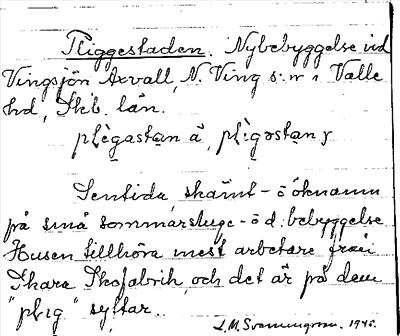 Pliggestaden. Nybebyggelse vid
Vingsjön Axvall, N. Ving s:n i Valle
hd, Skb. län.
plègastạn å, plìgastạn
Sentida skämt- o öknamn
på små sommarstuge- o d. bebyggelse
Husen tillhöra mest arbetare från
Skara Skofabrik, och det är på dem
"plig" syftar.
1945.